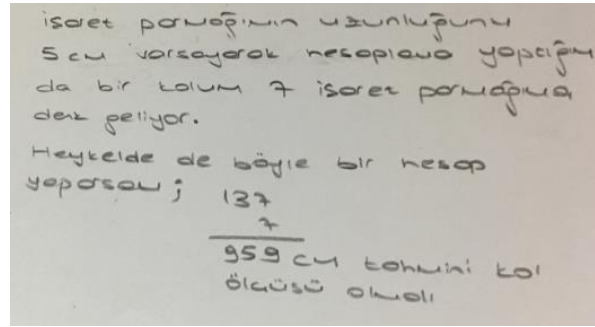 işaret parmağımın uzunluğunu
5 cm varsayarak hesaplama yaptığım
da bir kolum 7 işaret parmağıma
denk geliyor.
Heykelde de böyle bir hesap
yaparsam ;
137
7
959 cm tahmini kol
ölçüsü olmalı